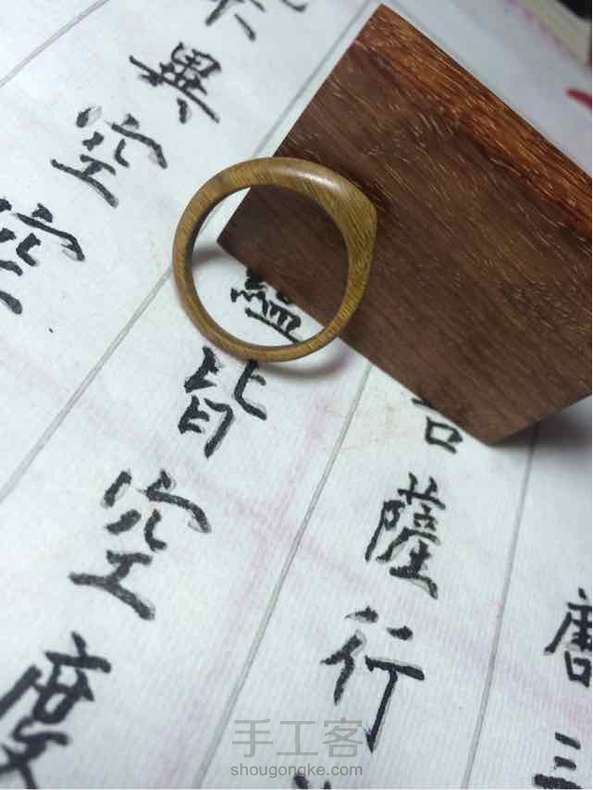 唐三
薩行
蘊皆空度
異空空
手工客
shougongke.com